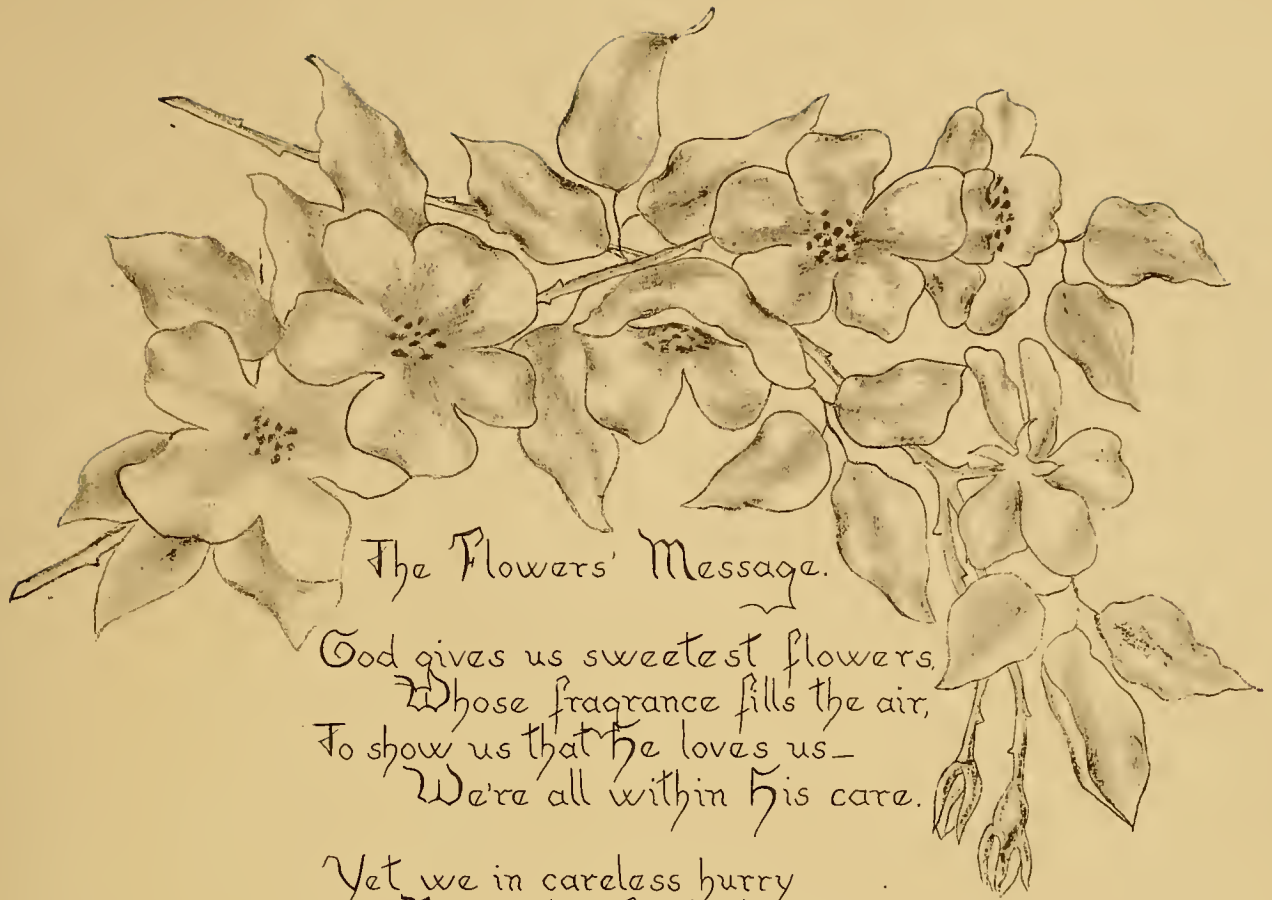 The Flowers' Message.
God gives us sweetest flowers,
Whose fragrance fills the air,
To show us that He loves us—
We're all within His care.
Yet we in careless hurry